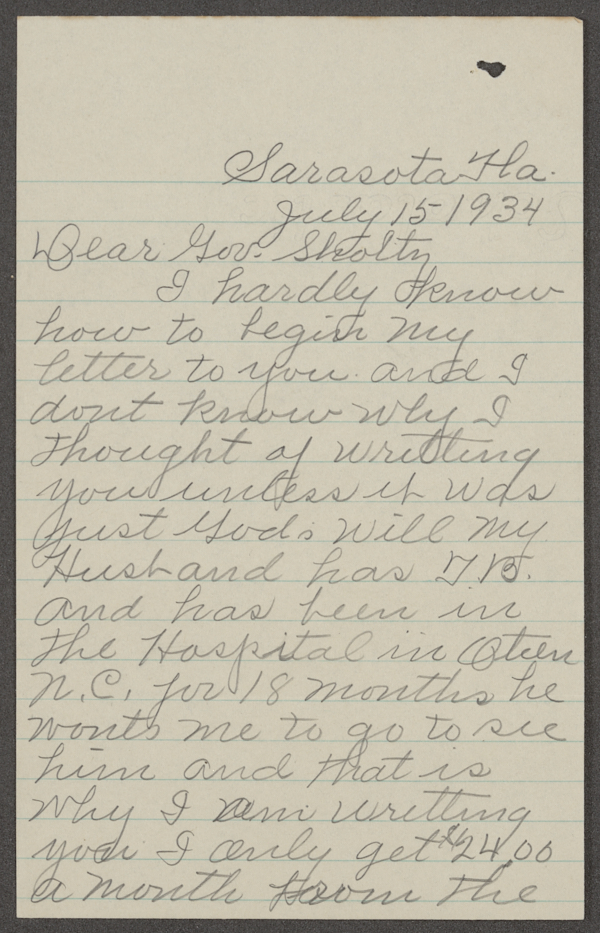 Sarasota Fla.
July 15 1934
Dear Gov. Sholtz
I hardly know
how to begin my
letter to you. and I
dont know why I
thought of writting
you unless it was
just Gods will my
Husband has T.B.
and has been in
the Hospital in Oteen
N.C. for 18 months he
wonts me to go to see
him and that is
why I am writting
you I only get $24.00
a month from the